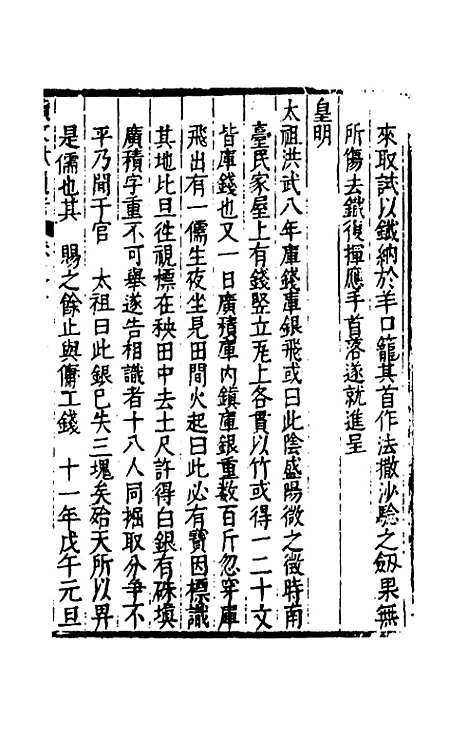 來取試以鐵納於羊口籠其首作法撒沙驗之劔果無
所傷去鐵復揮應手首落遂就進呈
皇明
太祖洪武八年庫錢庫銀飛或曰此陰盛陽微之徵時南
臺民家屋上有錢竪立瓦上各貫以竹或得一二十文
皆庫錢也又一日廣積庫內鎮庫銀重數百斤忽穿庫
飛出有一儒生夜坐見田間火起曰此必有寶因標識
其地比旦徃視標在秧田中去土尺許得白銀有硃填
廣積字重不可舉遂告相識者十八人同掘取分爭不
平乃聞于官 太祖曰此銀已失三塊矣殆天所以畀
是儒也其 賜之餘止與傭工錢 十一年戊午元旦